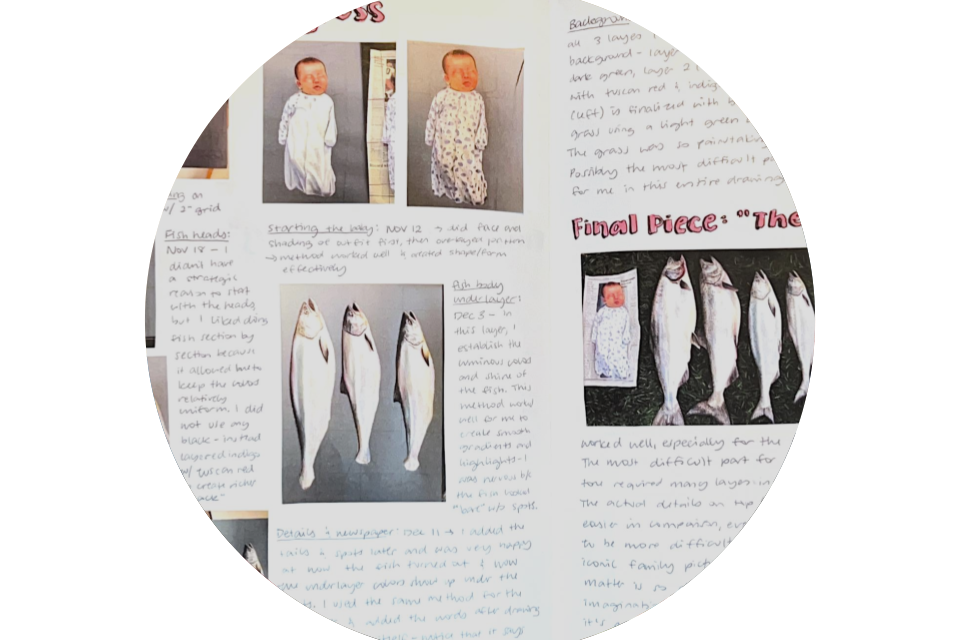 on
w/ 2" grid
Fish heads:
Nov 18 - I
didn't have
a strategic
reason to start
with the heads,
but I liked doing
fish section by
section because
it allowed me to
keep the colors
relatively
uniform. I did
not use any
black - instead
layered indigo
w/ tuscan red
create richer
Starting the baby: Nov 12 → did face and
shading of outfit first, then overlayed pattern
→ method worked well & created shape/form
effectively
Fish body
underlayer:
Dec 3 - in
this layer, I
establish the
luminous colors
and shine of
the fish. This
method works
well for me to
create smooth
gradients and
highlights - I
was nervous b/c
the fish looked
"bare" w/o spots.
Details & newspaper: Dec 11 → I added the
tails & spots later and was very happy
at how the fish turned out & how
the underlayer colors show up under the
I used the same method for the
& added the words after drawing
that it says
Background
all 3 layers
background - layer
dark green, layer 2
with tuscan red & indigo
(left) is finalized with
grass using a light green
The grass was so painstaking
Possibly the most difficult
for me in this entire drawing
Final Piece: "The
worked well, especially for the
The most difficult part for
required many layers
The actual details on top
easier in comparison,
to be more difficult
iconic family
matter is so
it's